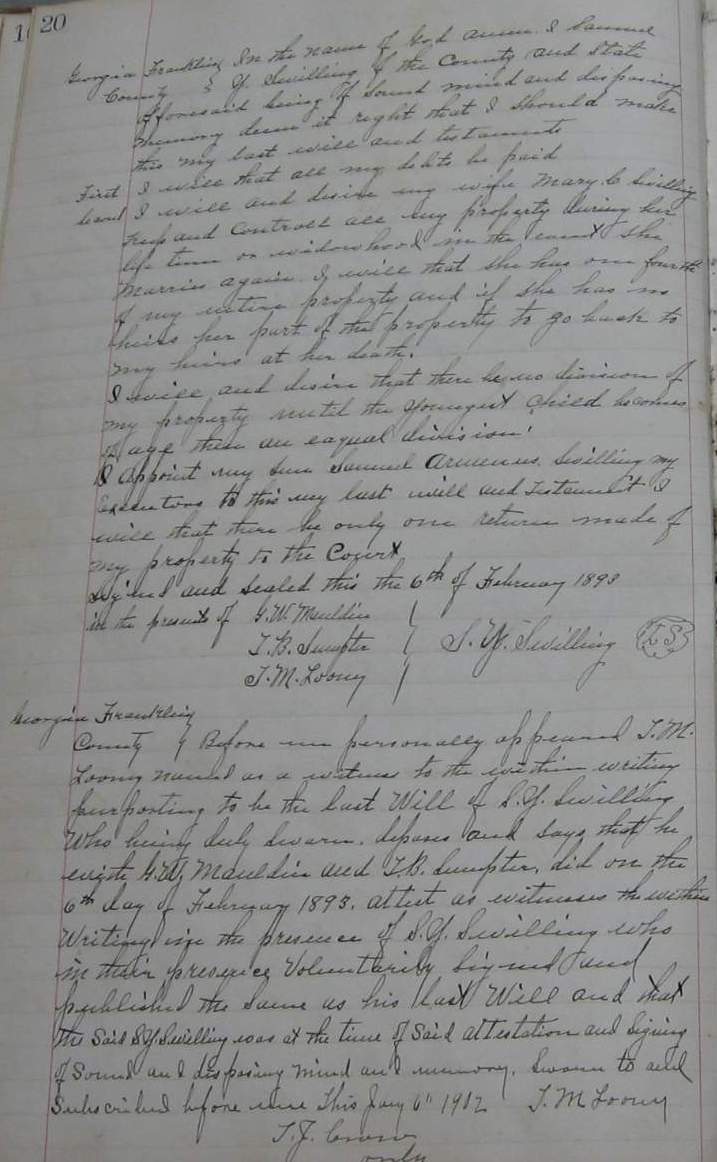 20
Georgia Franklin } In the name of God amen. I Samuel
County } Y. Swilling of the County and State
afforesaid being of sound mind and disposing
memory deem it right that I should make
this my last will and testaments
First I will that all my debts be paid
Second I will and desire my wife Mary C Swilling
keep and Controll all my property during her
life time or widowhood in the event she
marries again. I will that she has one fourth
of my entire property and if she has no
heirs her part of the property to go back to
my heirs at her death.
I will and desire that there be no division of
my property until the youngest child becomes
of age then an eaqual division.
I appoint my son Samuel Swilling my
Executors to this my last will and Testament I
will that there be only one return made of
my property to the Court.
Signed and sealed this the 6th of February 1893
in the presents of G.W. Mauldin
T.B. Sumpter } S.Y. Swilling (LS)
T.M. Looney
Georgia Franklin
County } Before me personally appeared T.M.
Looney named as a witness to the within writing
purporting to be the last Will of S.Y. Swilling
Who being duly sworn, deposes and says that he
with G.W. Mauldin and T.B. Sumpter, did on the
6th day of February 1893, attest as witnesses the within
Writing in the presence of S.Y. Swilling who
in their presence Voluntarily Signed and
published the same as his last Will and that
the Said S.Y. Swilling was at the time of Said attestation and Signing
of Sound and disposing mind and memory. Sworn to and
Subscribed before me This Jany 6" 1902 T.M Looney
T.J.
only